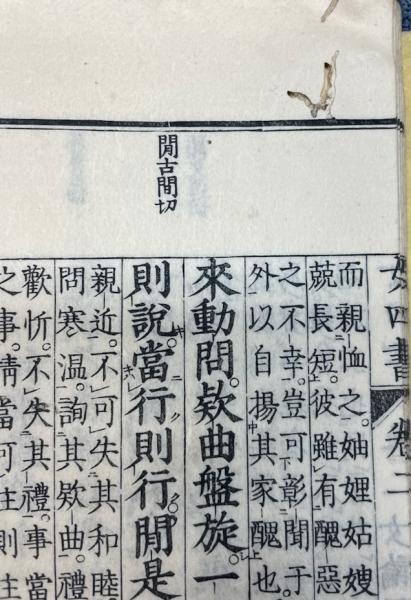 女四書 卷二
而親恤之。妯娌姑嫂
兢長短。彼雖有醜惡
之不幸。豈可彰聞于
外以自揚其家醜也。
來動問。欵曲盤旋。一
閒古間切
則說。當行則行。閒是
親近。不可失其和睦。
問寒温。詢其欵曲。禮
歡忻。不失其禮。事當
之事。情當可往則往